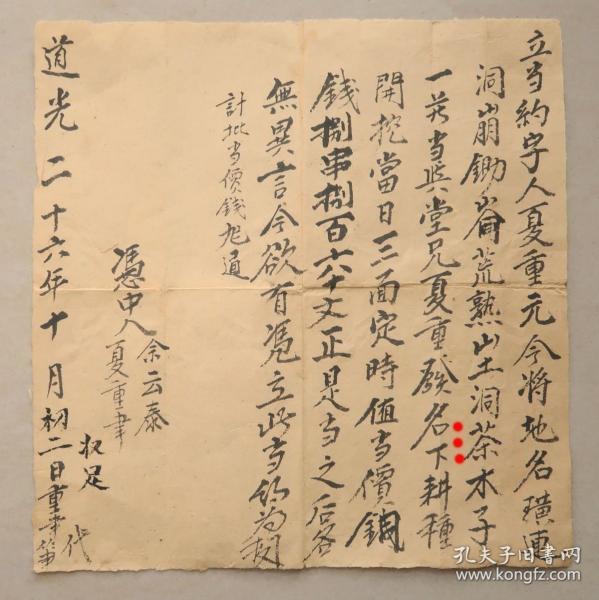 立当約字人夏重元今将地名璜連
洞崩鋤崙荒熟山土洞茶木子
一共当與堂兄夏重發名下耕種
開挖當日三面定時值当價銅
錢捌串捌百六十文正是当之后各
無異言今欲有憑立此当約為
計批当價錢旭通
憑中人余云泰
夏重聿
权足
道光二十六年十月初二日重聿代筆
孔夫子旧书网
www.kongfz.com